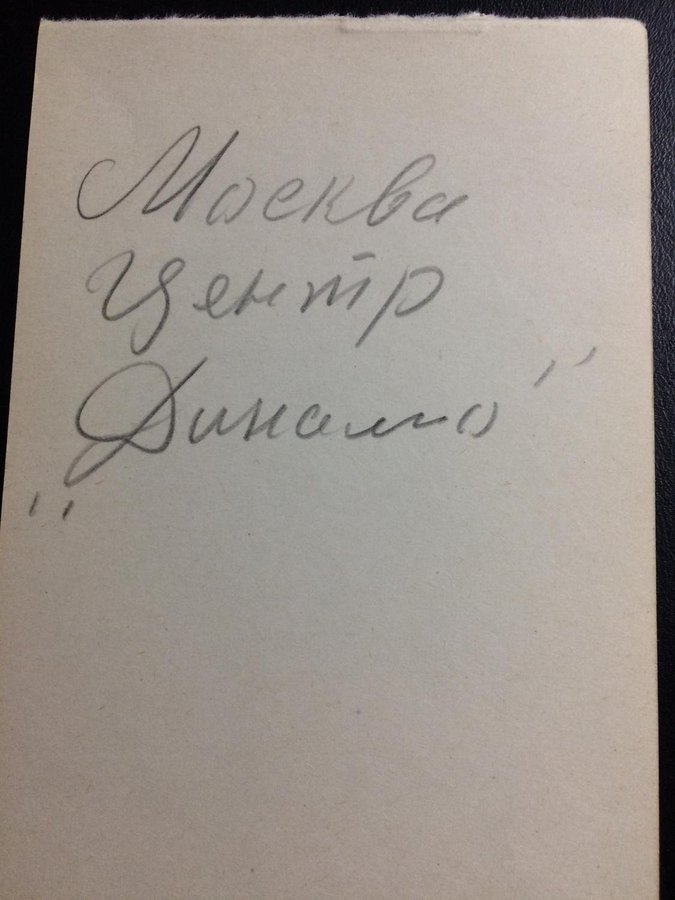 Москва
Центр
„Динамо”